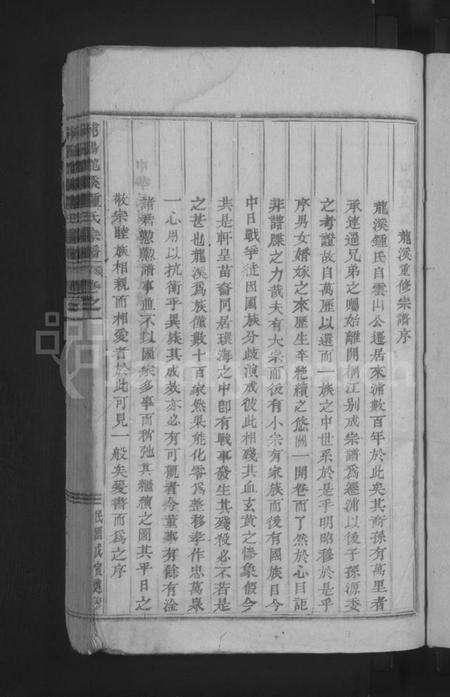 龍溪重修宗譜序
龍溪鍾氏自雲山公遷居來浦數百年於此矣其裔孫有萬里者
承連過兄弟之囑始離開桐江別成宗譜爲遷浦以後子孫源委
之考證故自萬歷以還而一族之中世系於是乎明昭穆於是乎
序男女婚嫁之來歷生卒牲績之悠湖一開卷而了然於心目詎
非譜牒之力哉夫有大宗而後有小宗有家族而後有國族目今
中日戰爭逹因國族分歧演成彼此相殘其血玄黃之慘象假令
共是軒皇苗裔同居環海之中卽有戰事發生其殘殺必不若是
之甚也龍溪爲族僅數十百家然果能化零爲整移孝作忠萬眾
一心用以抗衡乎異族其成效亦必有可觀者今董事有餘有淦
諸君懃懃譜事並不以國家多事而稍弛其繼續之圖其平日之
敬宗睦族相親而相愛者於此可見一般矣爰譜而爲之序
龍溪鍾氏宗譜
民國戊寅